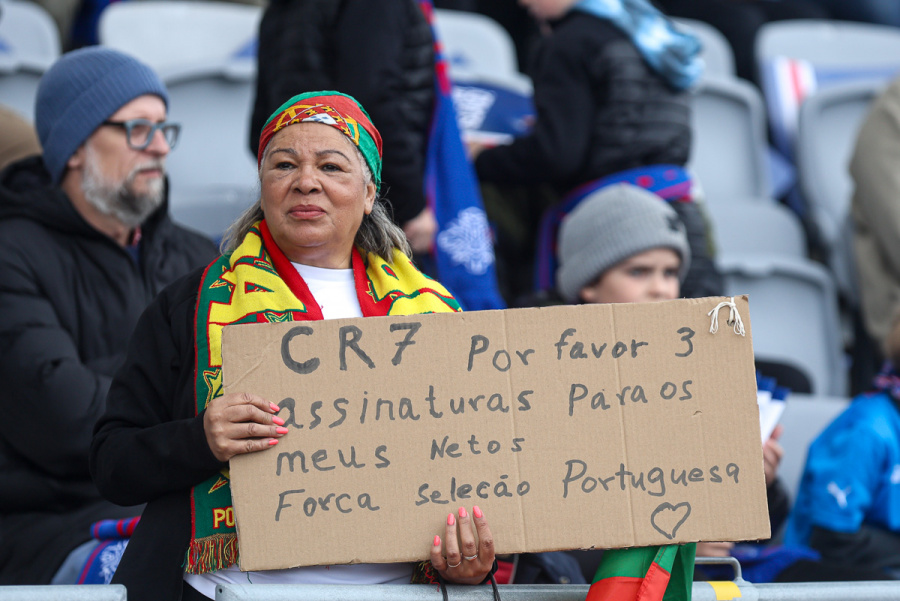 CR7 Por favor 3
assinaturas Para os
meus Netos
Forca Selecão Portuguesa
PO